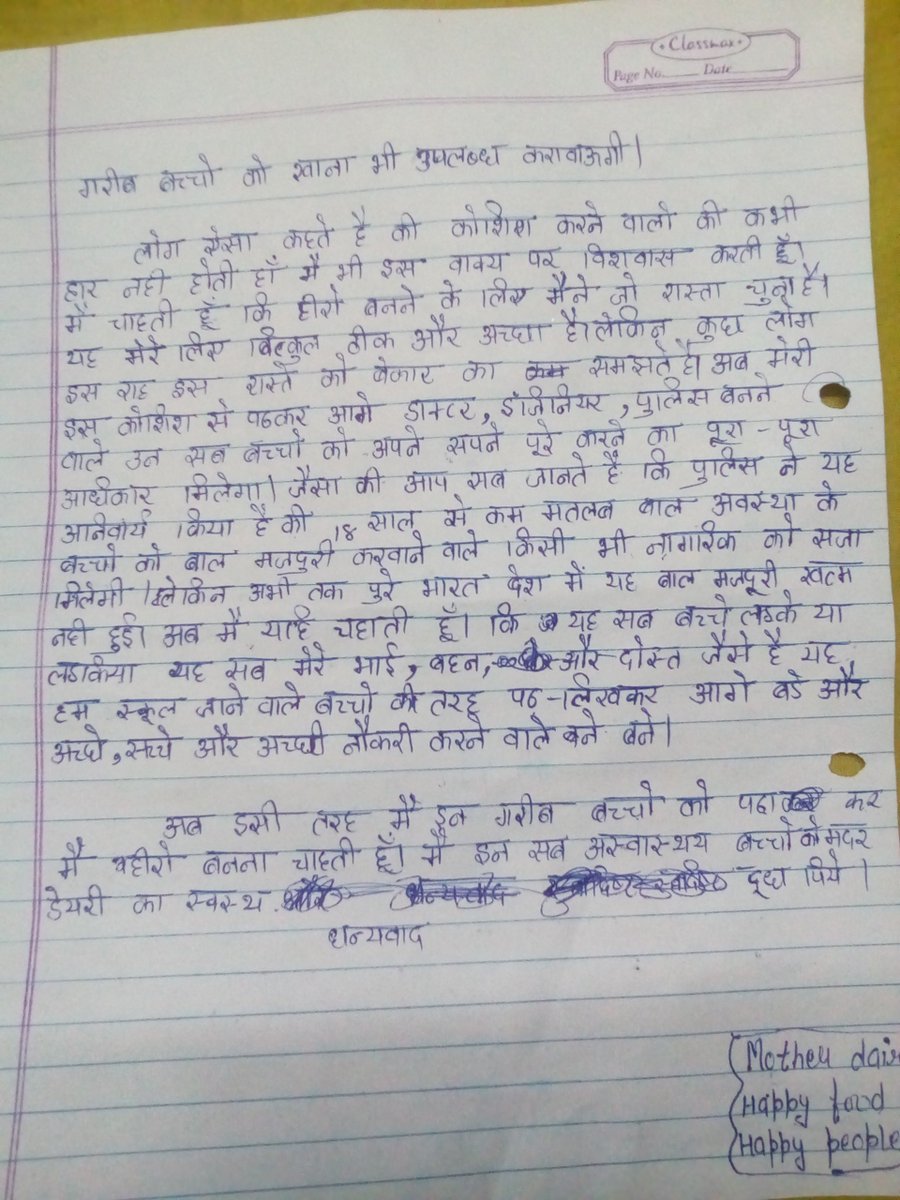 Classmax
Page No. Date
गरीब बच्चो को खाना भी उपलब्ध करावाऊगी।
लोग ऐसा कहते है की कोशिश करने वालो की कभी
हार नही होती हाँ मै भी इस वाक्य पर विशवास करती हूँ।
मैं चाहती हूँ कि हीरो बनने के लिए मैने जो रास्ता चुना है।
यह मेरे लिए बिल्कुल ठीक और अच्छा है। लेकिन कुछ लोग
इस राह इस रास्ते को बेकार का समझते है। अब मेरी
इस कोशिश से पढकर आगे डाक्टर, इंजिनियर, पुलिस बनने
वाले उन सब बच्चो को अपने सपने पूरे करने का पूरा-पूरा
अधिकार मिलेगा। जैसा की आप सब जानते है कि पुलिस ने यह
अनिवार्य किया है की 18 साल से कम मतलब बाल अवस्था के
बच्चो को बाल मजदुरी करवाने वाले किसी भी नागरिक को सजा
मिलेगी। लेकिन अभी तक पुरे भारत देश में यह बाल मजदुरी खत्म
नही हुई। अब मै यहि चहाती हूँ। कि यह सब बच्चे लडके या
लडकिया यह सब मेरे भाई, बहन, और दोस्त जैसे है यह
हम स्कूल जाने वाले बच्चो की तरह पढ-लिखकर आगे बडे और
अच्छे, सच्चे और अच्छी नौकरी करने वाले बने बने।
अब इसी तरह मै इन गरीब बच्चो को पढा कर
मै हीरो बनना चाहती हूँ। मै इन सब अस्वास्थय बच्चो को मदर
डेयरी का स्वस्थ दूध पिये।
धन्यवाद
Mother dair
Happy food
Happy people